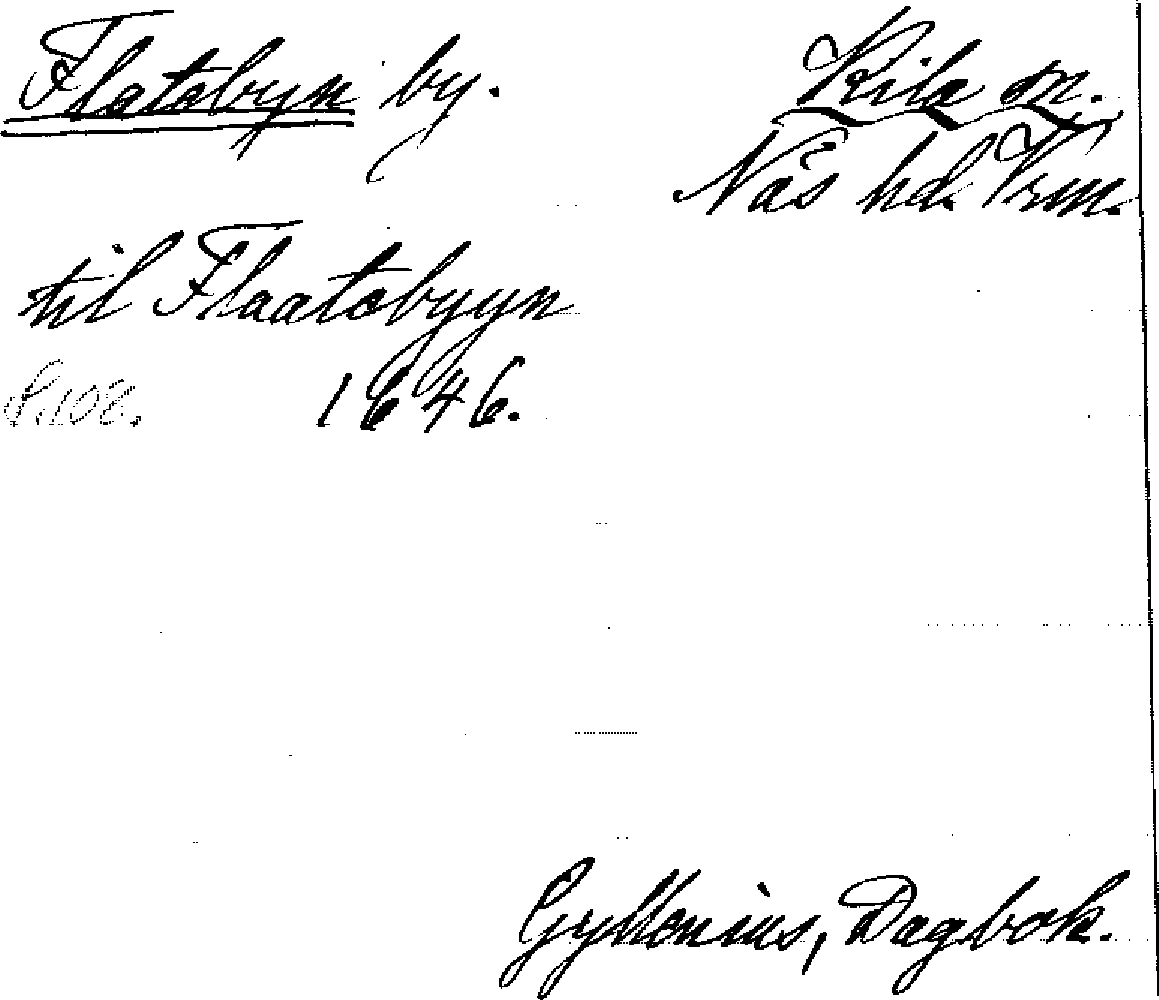 Flatabyn by.
Kila sn.
Näs hd. Vrm.
til Flaatabyyn
S. 108. 1646.
Gyllenius, Dagbok.